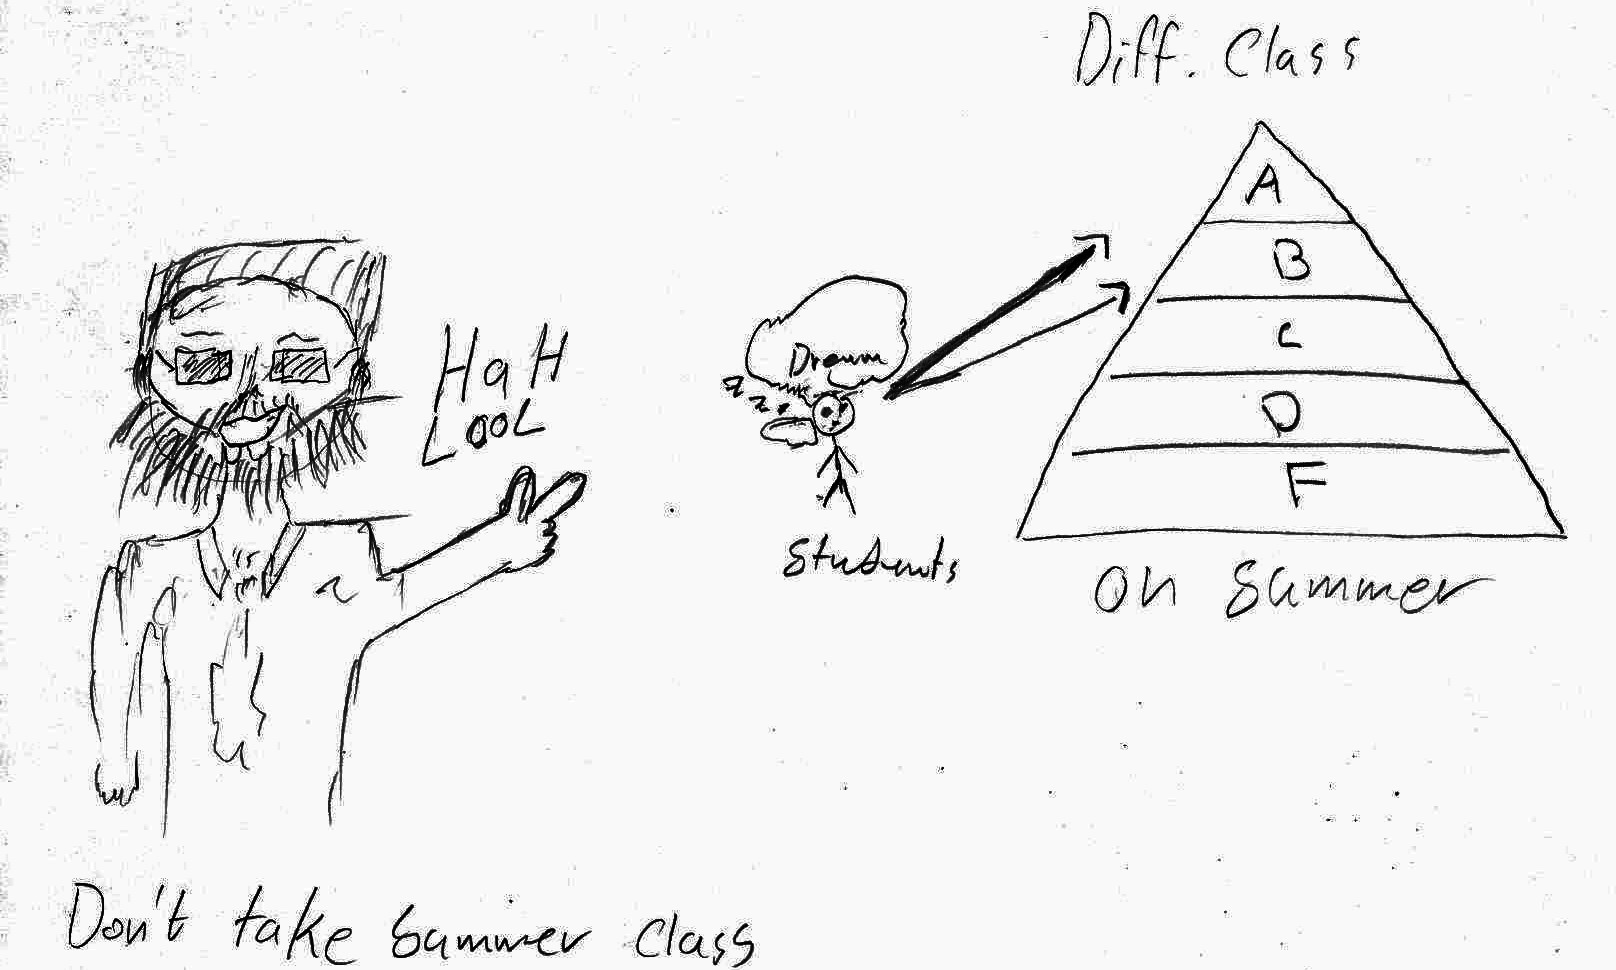 Diff. Class
A
B
C
D
F
on summer
HaH
LooL
Dream
students
Don't take summer class